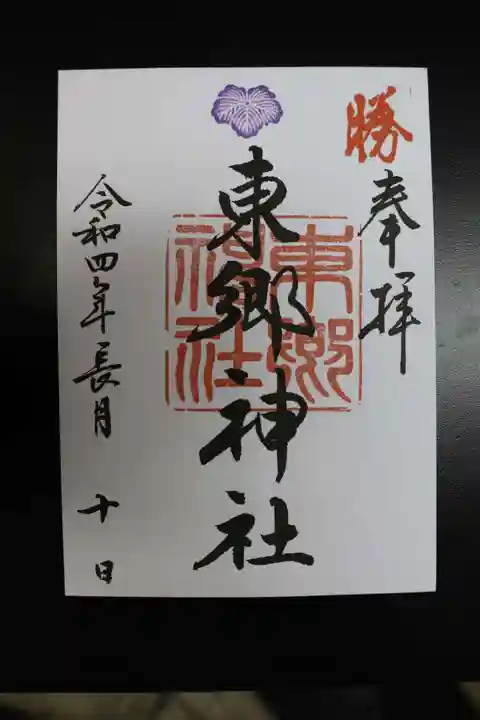 勝
奉拝
東郷神社
東郷
神社
令和四年長月 十日